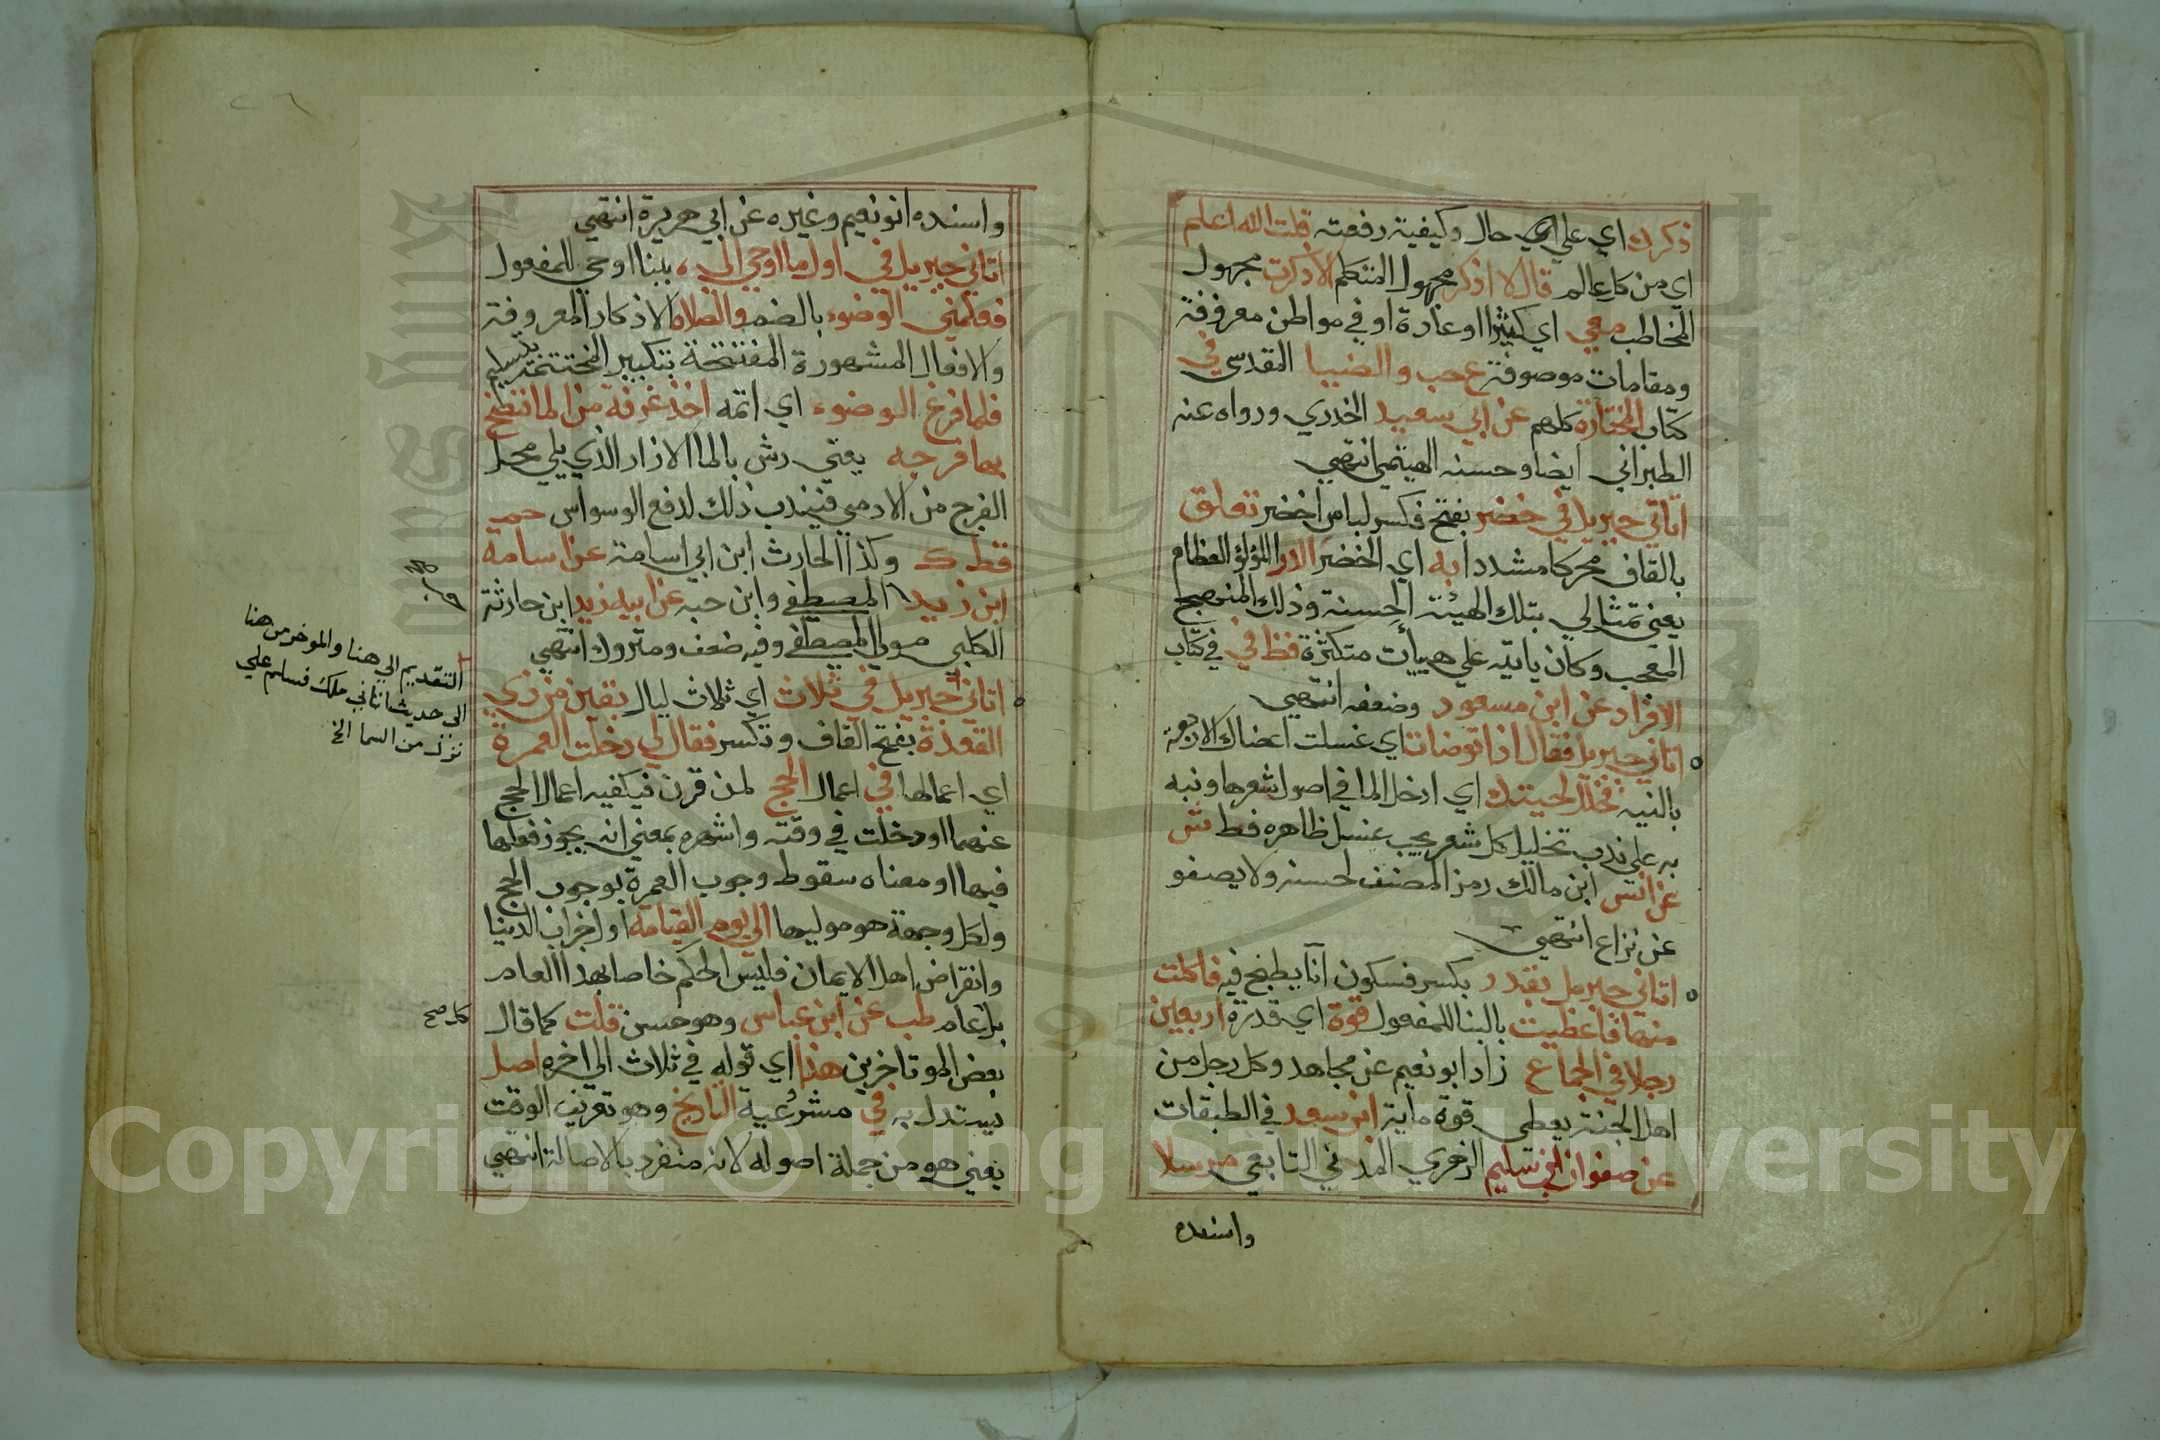 ذكرك اي علي اي حال وكيفية رفعته قلت الله اعلم
اي من كل عالم قال لا اذكر مجهول المتكلم الا ذكرت مجهول
المخاطب معي اي كثيرا او عادة او في مواطن معروفة
ومقامات موصوفة ع حب والضيا المقدسي في
كتاب المختارة كلهم عن ابي سعيد الخدري ورواه عنه
الطبراني ايضا وحسنه الهيتمي انتهي
اتاني جبريل في خضر بفتح فكسر لباس اخضر تعلق
بالقاف محركا مشددا به اي الخضر الدر اللؤلؤ العظام
يعني تمثل لي بتلك الهيئة الحسنة وذلك المنهج
المعجب وكان ياتيه علي هييات متكثرة قط في في كتاب
الافراد عن ابن مسعود وضعفه انتهي
اتاني جبريل فقال اذا توضات اي غسلت اعضاك الاربعة
بالنية فخلل لحيتك اي ادخل الما في اصول شعرها ونبه
به علي ندب تخليل كل شعر يجب غسل ظاهره فقط ش
عن انس ابن مالك رمز المصنف لحسنه ولا يصفو
عن نزاع انتهي
اتاني جبريل بقدر بكسر فسكون انآ يطبخ فيه فاكلت
منها فاعطيت بالبنا للمفعول قوة اي قدرة اربعين
رجلا في الجماع زاد ابو نعيم عن مجاهد وكل رجل من
اهل الجنة يعطي قوة ماية ابن سعد في الطبقات
عن صفوان ابن سليم الزهري المدني التابعي مرسلا
واسنده
واسنده ابو نعيم وغيره عن ابي هريرة انتهي
اتاني جبريل في اول ما اوحي الي ببنا اوحي للمفعول
فعلمني الوضوء بالضم والصلاة الاذكار المعروفة
والافعال المشهورة المفتتحة بتكبير المختتمة بتسليم
فلما فرغ الوضوء اي اتمه اخذ غرفة من الما فنضخ
بها فرجه يعني رش بالما الازار الذي يلي محل
الفرج من الادمي فيندب ذلك لدفع الوسواس حم
قط ك وكذا الحارث ابن ابي اسامة عن اسامة
ابن زيد المصطفي وابن حبه عن ابيه زيد ابن حارثة
الكلبي مولي المصطفي وفيه ضعف ومتروك انتهي
اتاني جبريل في ثلاث اي ثلاث ليال بقين من ذي
القعدة بفتح القاف وتكسر فقال لي دخلت العمرة
اي اعمالها في اعمال الحج لمن قرن فيكفيه اعمال الحج
عنهما او دخلت في وقته واشهره بمعني انه يجوز فعلها
فيها او معناه سقوط وجوب العمرة بوجوب الحج
ولكل وجهة هو موليها الي يوم القيامة اول خراب الدنيا
وانقراض اهل الايمان فليس الحكم خاصا بهذا العام
بل عام طب عن ابن عباس وهو حسن قلت كما قال
بعض الموتاخرين هذا اي قوله في ثلاث الي اخره اصل
يستدل به في مشروعية التاريخ وهو تعريف الوقت
يعني هو من جملة اصوله لانه منفرد بالاصالة انتهي
التقديم الي هنا والموخر من هنا
الي حديث اتاني ملك فسلم علي
نزل من السما الخ
Copyright © King Saud University